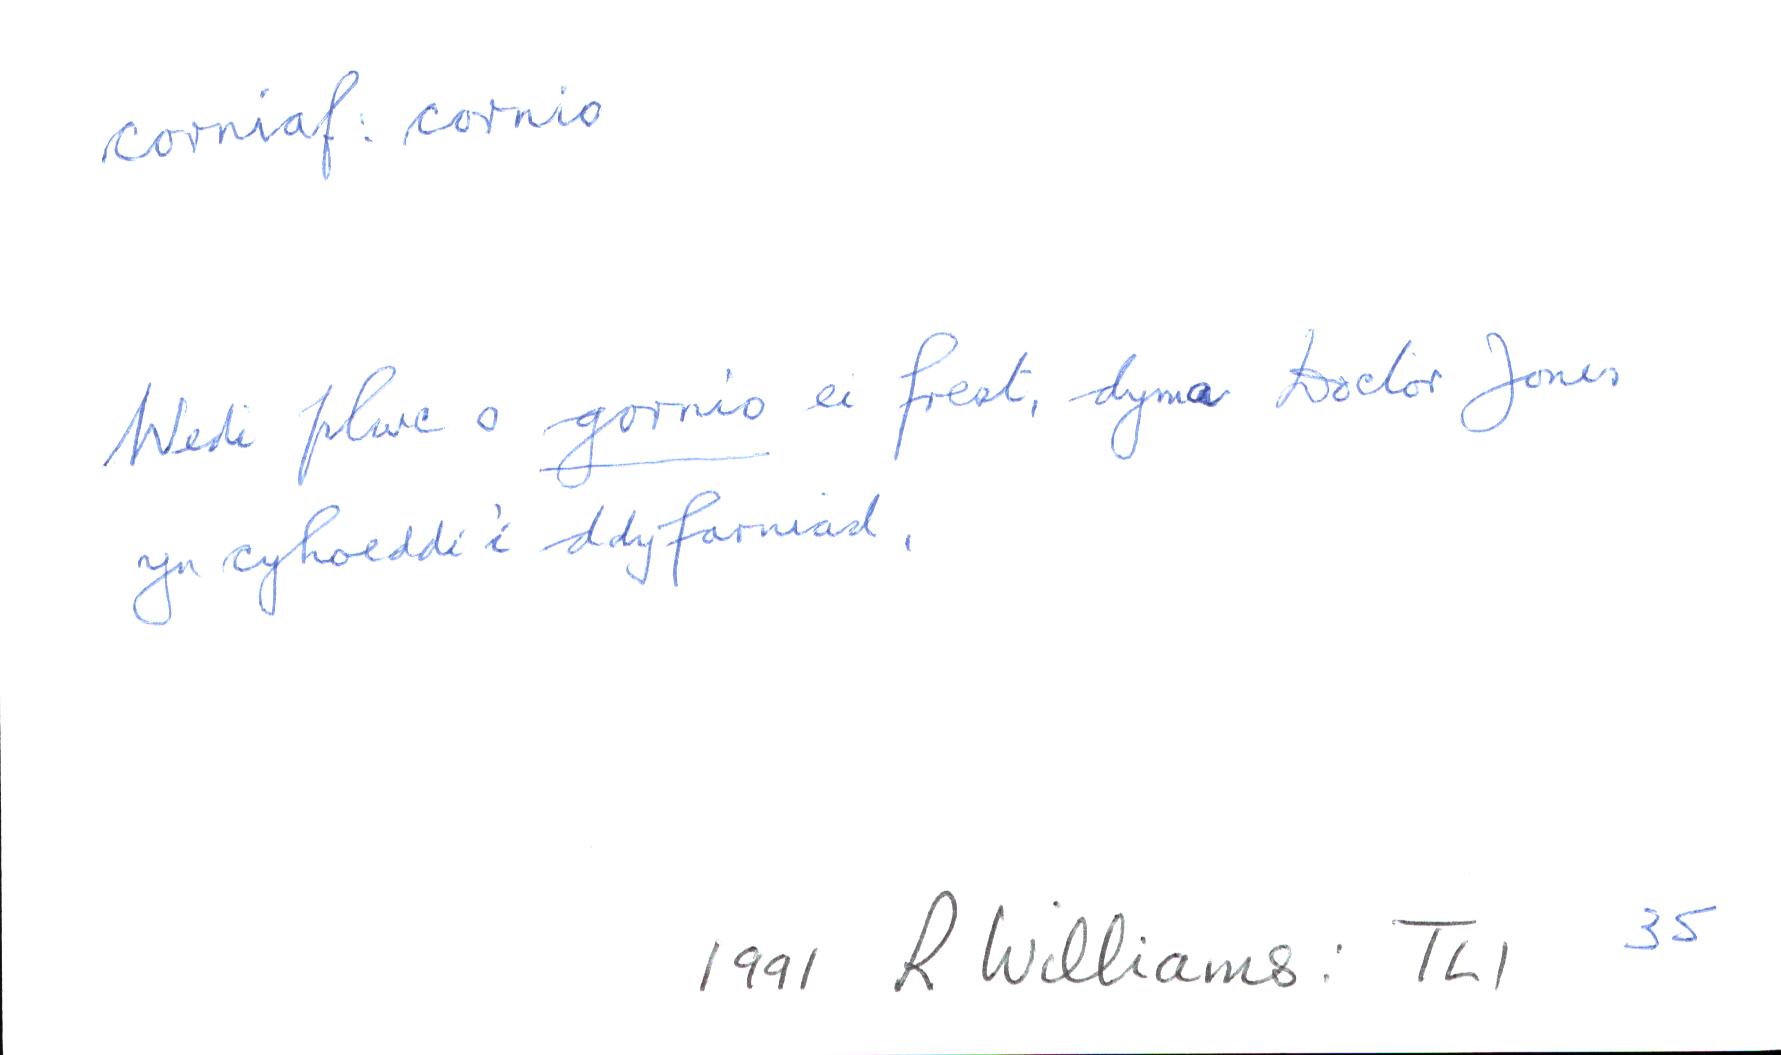 corniaf: cornio
Wedi plwc o gornio ei frest, dyma Doctor Jones
yn cyhoeddi'i ddyfarniad.
1991 R Williams: TLI 35